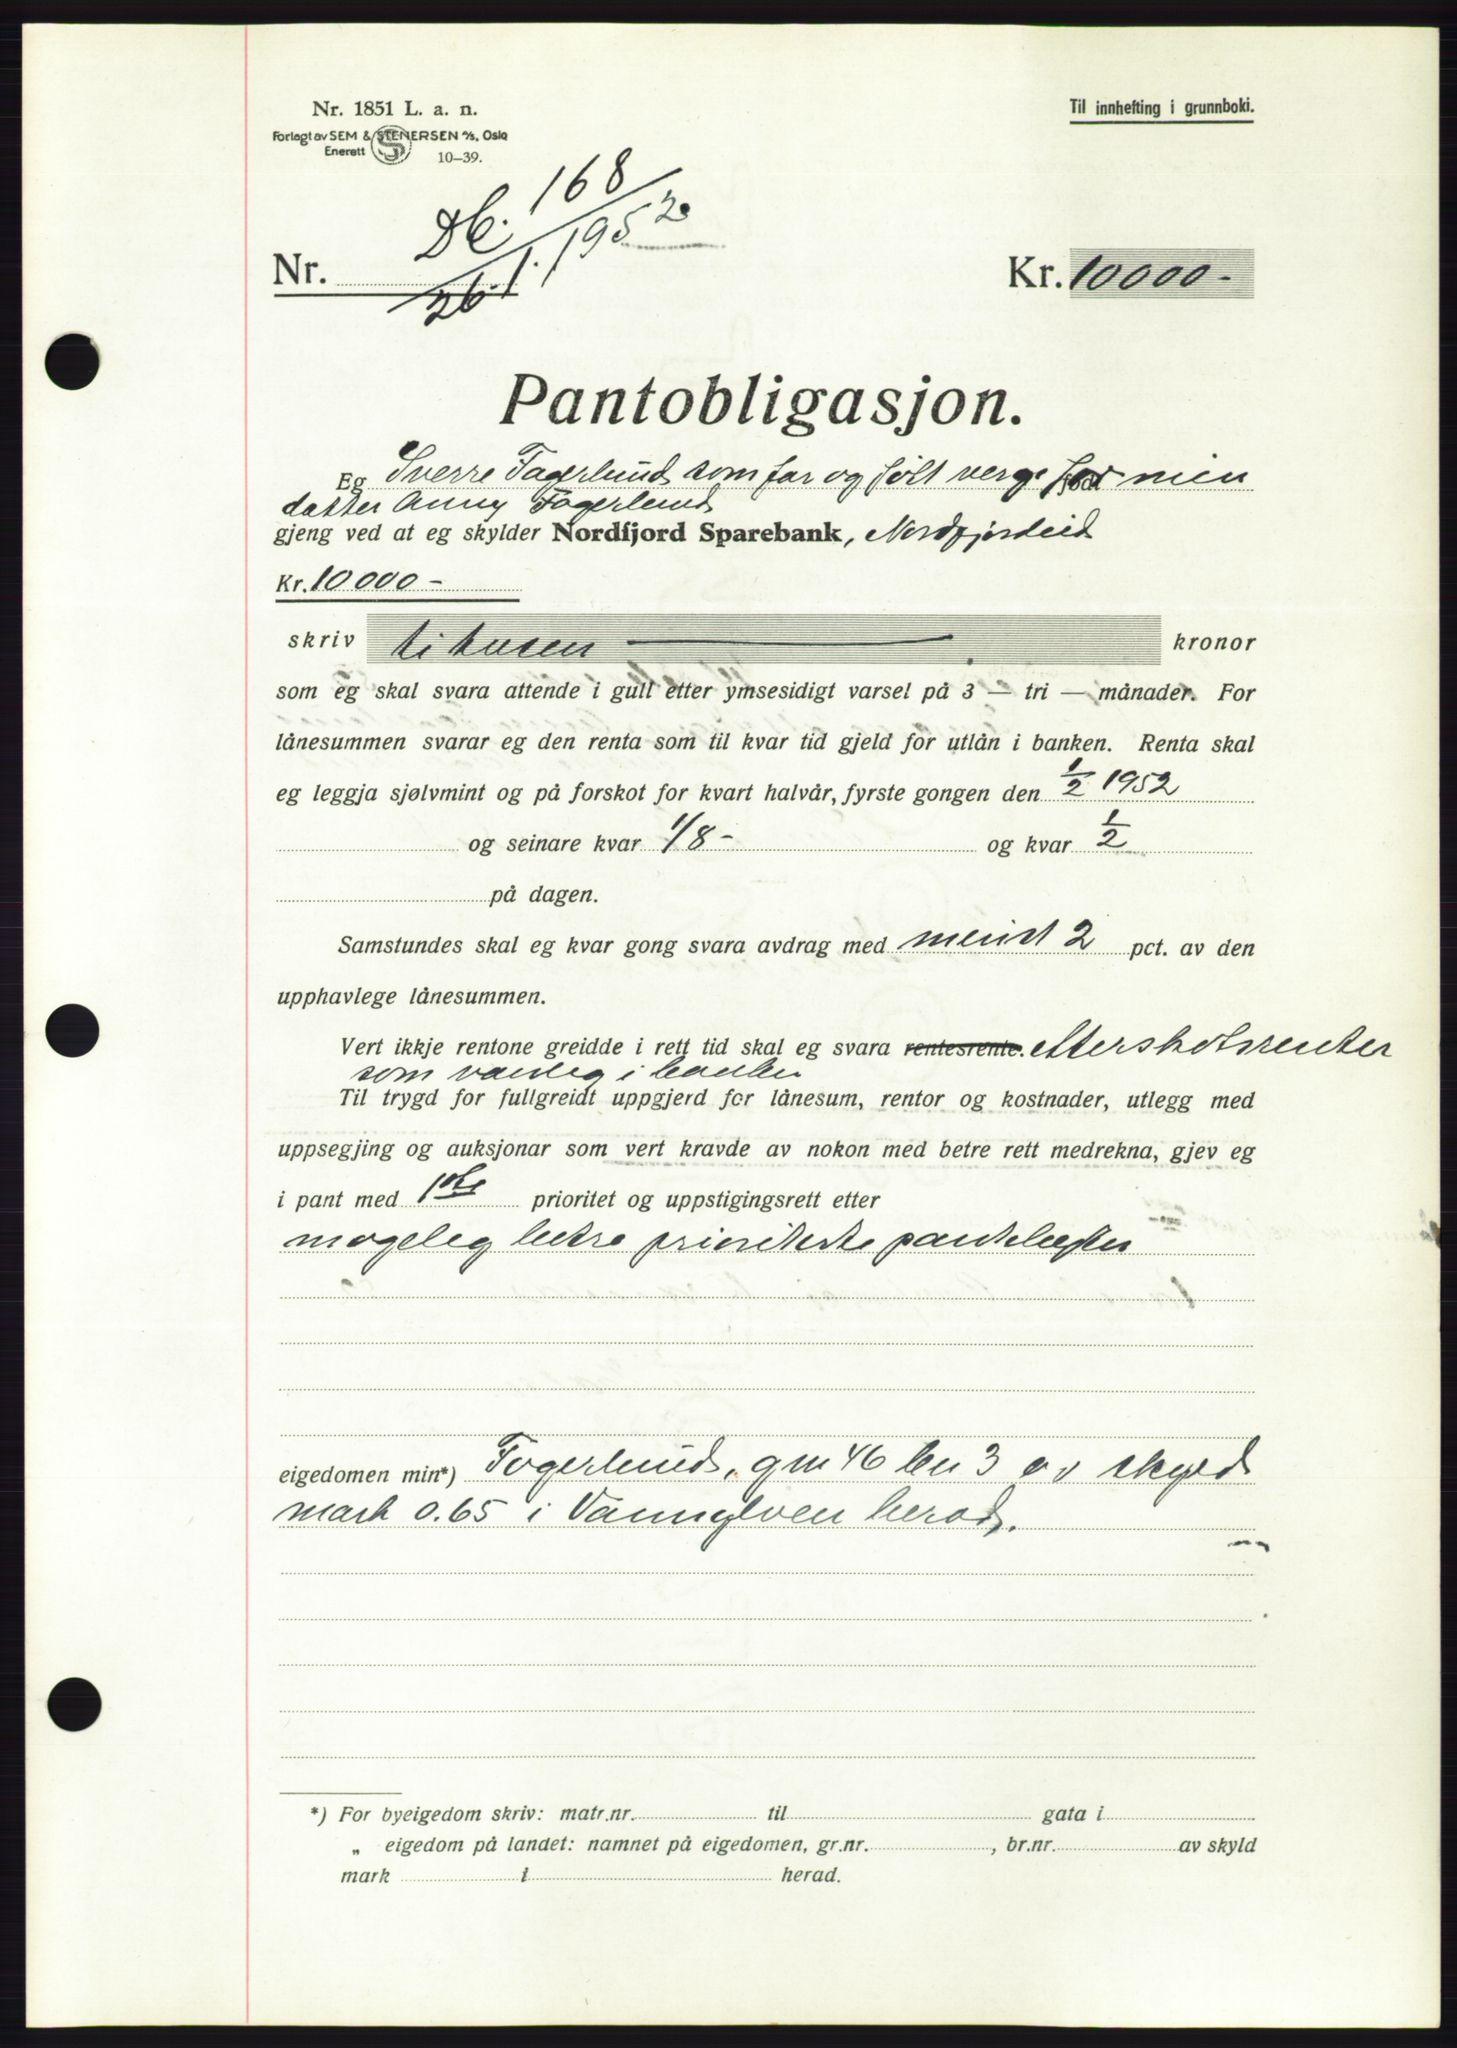 Nr. 1851 L. a. n.
Forlagt av SEM & STENERSEN A/S, Oslo
Enerett 10–39.
Til innhefting i grunnboki.
Db. 168
26/1. 1952
Nr.
Kr. 10 000 -
Pantobligasjon.
Eg Sverre Fagerlund som far og født verge for min
datter Anny Fagerlund
gjeng ved at eg skylder Nordfjord Sparebank, Nordfjordeid
Kr. 10 000 -
skriv ti tusen kronor
som eg skal svara attende i gull etter ymsesidigt varsel på 3 — tri — månader. For
lånesummen svarar eg den renta som til kvar tid gjeld for utlån i banken. Renta skal
eg leggja sjølvmint og på forskot for kvart halvår, fyrste gongen den 1/2 1952
og seinare kvar 1/8 - og kvar 1/2
på dagen.
Samstundes skal eg kvar gong svara avdrag med minst 2 pct. av den
upphavlege lånesummen.
Vert ikkje rentone greidde i rett tid skal eg svara rentesrente. etterskotsrenter
som vanleg i banken
Til trygd for fullgreidt uppgjerd for lånesum, rentor og kostnader, utlegg med
uppsegjing og auksjonar som vert kravde av nokon med betre rett medrekna, gjev eg
i pant med 1ste prioritet og uppstigingsrett etter
mogeleg betre prioriterte panthefter
eigedomen min*) Fagerlund, gnr 46 bnr 3 av skyld
mark 0.65 i Vannylven herad.
*) For byeigedom skriv: matr.nr. til gata i
„ eigedom på landet: namnet på eigedomen, gr.nr. , br.nr. av skyld
mark i herad.